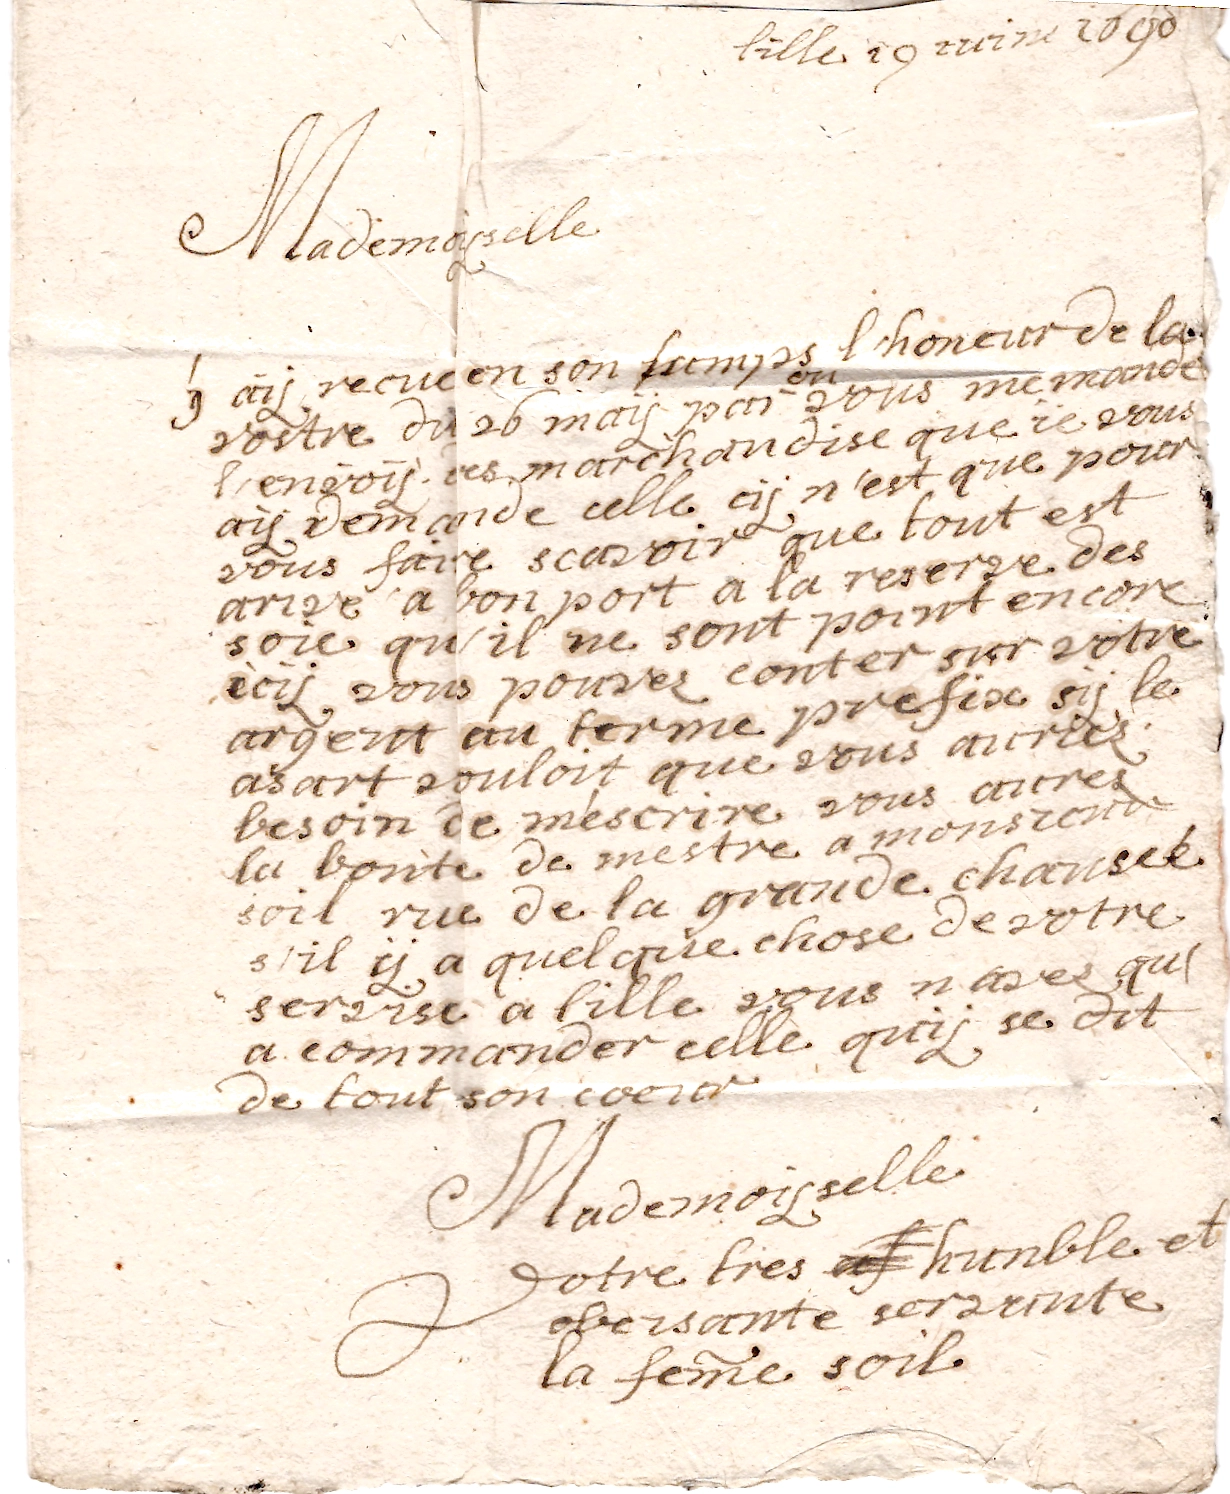 lille 19 iuine 1690
Mademoiyselle
j'aiy recue en son tumps l'honeur de la
vostre du 26 maiy par ou vous me mande
l'envoiy des marchandise que ie vous
aiy demande celle ciy n'est que pour
vous faire scavoir que tout est
arive a bon port a la reserve des
soie qu'il ne sont point encore
iciy vous pouvez conter sur votre
argent au terme prefix siy le
asart vouloit que vous auriez
besoin de m'escrire vous aures
la bonte de mestre a monsieur
soil rue de la grande chauseé
s'il iy a quelque chose de votre
servise a lille vous n avez qu'
a commander celle quiy se dit
de tout son coeur
Mademoiyselle
votre tres humble et
obeisante servante
la fem̃e soil